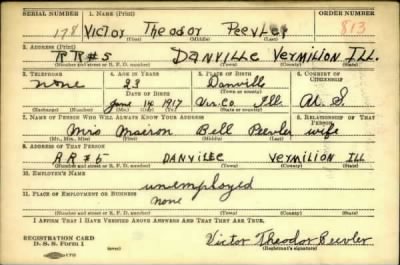 SERIAL NUMBER 1. NAME (Print) ORDER NUMBER
178 Victor Theodor Peevler 813
(First) (Middle) (Last)
2. ADDRESS (Print)
RR#5 DANVILLE VERMILION ILL.
(Number and street or R. F. D. number) (Town) (County) (State)
3. TELEPHONE 4. AGE IN YEARS 5. PLACE OF BIRTH 6. COUNTRY OF CITIZENSHIP
none 23 Danville
DATE OF BIRTH (Town or county)
June 14 1917 Ver. Co. Ill. U. S.
(Exchange) (Number) (Mo.) (Day) (Yr.) (State or country)
7. NAME OF PERSON WHO WILL ALWAYS KNOW YOUR ADDRESS 8. RELATIONSHIP OF THAT PERSON
Mrs Bell Peevler wife
(Mr., Mrs., Miss) (First) (Middle) (Last)
9. ADDRESS OF THAT PERSON
RR#5 DANVILLE VERMILION ILL
(Number and street or R. F. D. number) (Town) (County) (State)
10. EMPLOYER'S NAME
unemployed
11. PLACE OF EMPLOYMENT OR BUSINESS
none
(Number and street or R. F. D. number) (Town) (County) (State)
I AFFIRM THAT I HAVE VERIFIED ABOVE ANSWERS AND THAT THEY ARE TRUE.
REGISTRATION CARD
D. S. S. Form 1
Victor Theodor Peevler
(Registrant's signature)